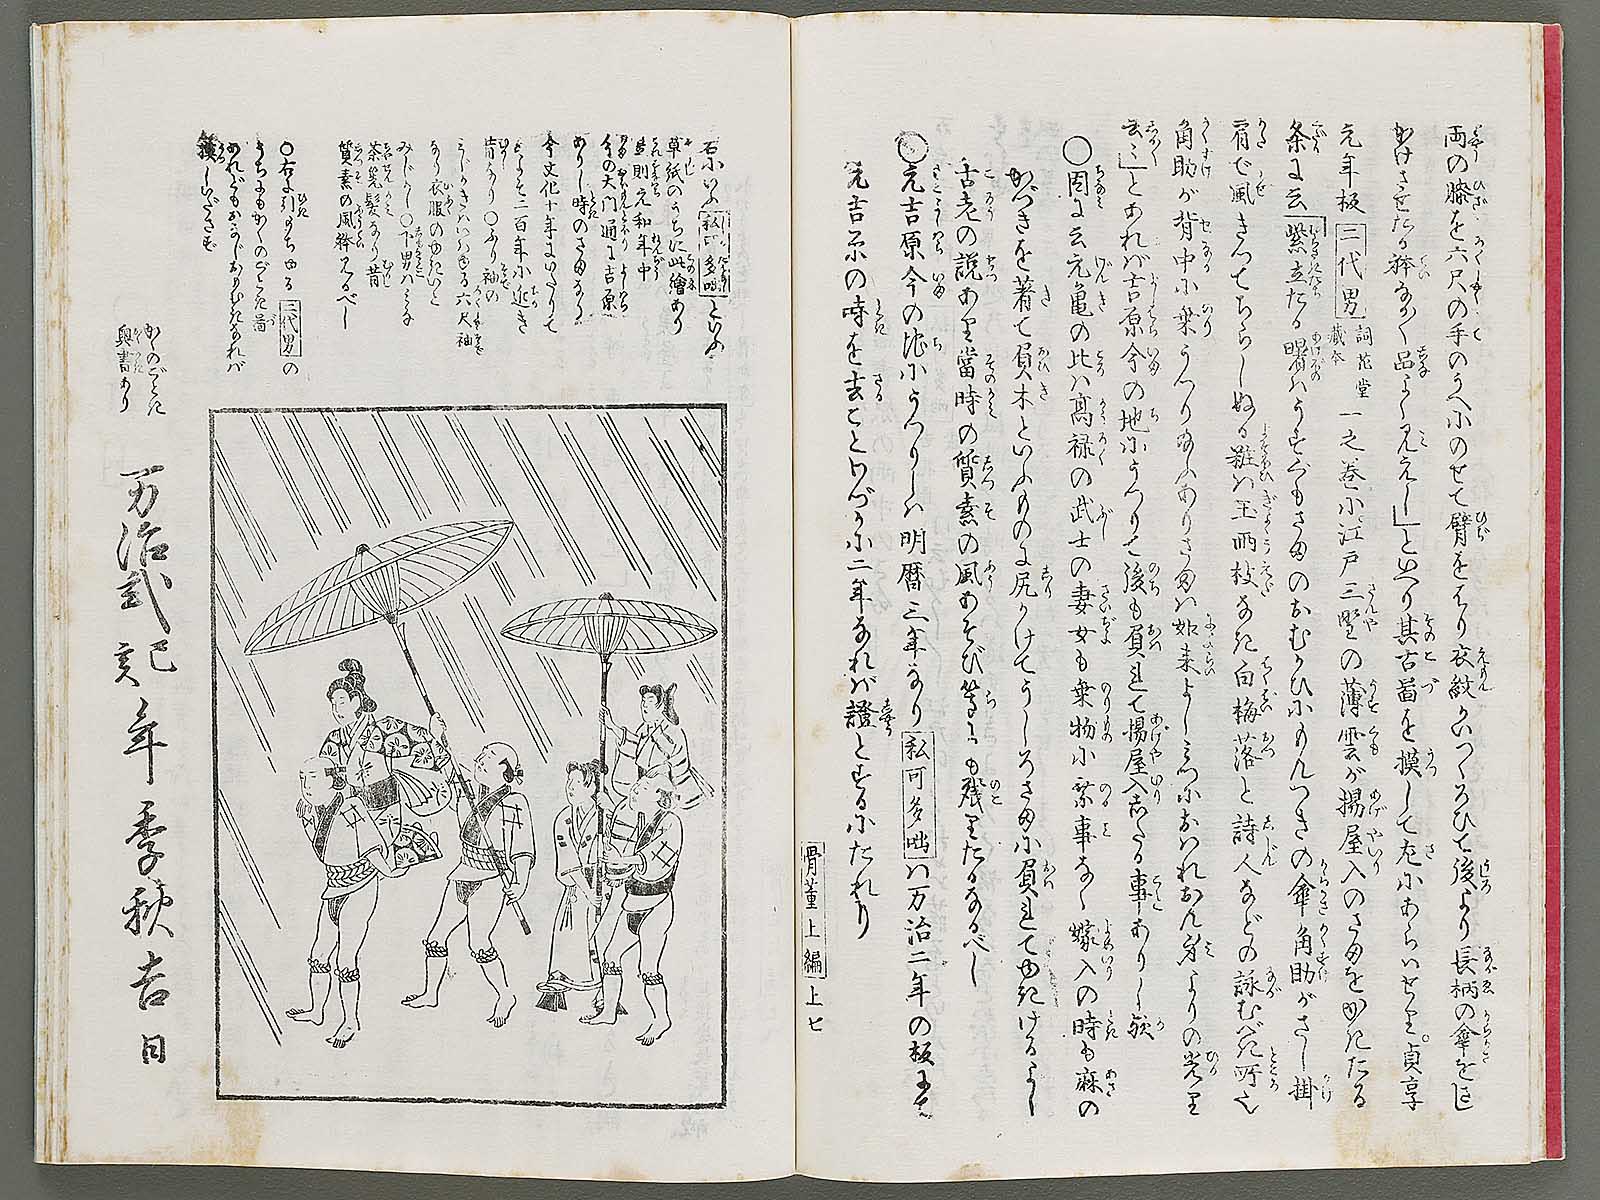 両の膝を六尺の手のうへにのせて臂をはり衣紋かいつくろひて後より長柄の傘をさし
かけさせたる体なかく品よく見えし」といへり其古図を摸して左にあらはせり。貞享
元年板 二代男 詞花堂蔵本 一之巻に江戸三野の薄雲が揚屋入のさまをかきたる
条に云「紫立たる曙はうすぐもさまのおむかひにもんつきの傘角助がさし掛
肩で風きつてちらしぬる粧は玉両枝なき白梅落と詩人などの詠むべき所也
角助が背中に乗うつり給ふありさまは如来よし
云々」とあれば吉原今の地にうつりて後も負れて揚屋入したる事ありし歟
○因に云元亀の比は高禄の武士の妻女も乗物に乗事なく嫁入の時も麻の
かづきを着て負木といふものに尻かけてうしろさまに負れてゆきけるよし
古老の説あり当時の質素の風あそび等にも残りたるなるべし
○元吉原今の地にうつりしは明暦三年なり 私可多咄 は万治二年の板にて
元吉原の時を去ことわづかに二年なれば証とするにたれり
骨董上編 上七
右にいふ 私可多咄 といふ
草紙のうちに此絵あり
且則元和年中
今の大門通に吉原
ありし時のさまなり
今文化十年にいたりて
およそ二百年に近き
昔なり ○ふり袖の
みじかきはいはゆる六尺袖
なり衣服のゆきいと
みじかし ○下男はみな
茶筅髪なり昔
質素の風体見るべし
○右に引たる 二代男 の
うちにもかくのごとき図
あれどもおなじおもむきなれば
摸しいださず
かくのごとに
奥書あり
万治弐己亥年季秋吉日